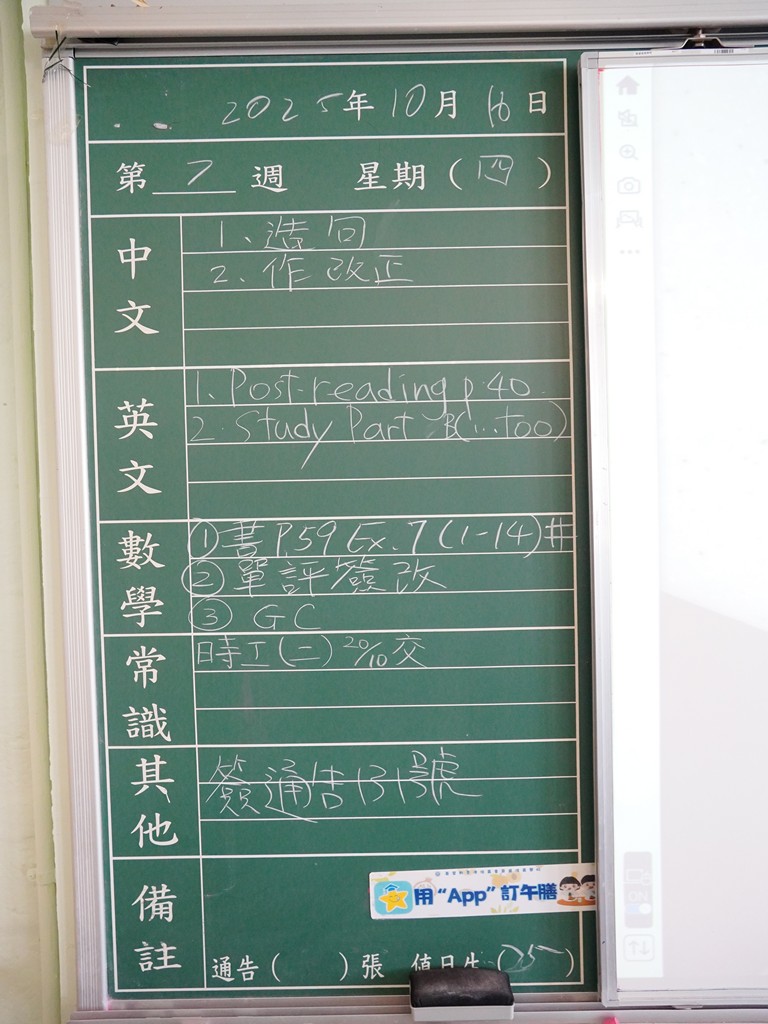 2025年10月16日
第 7 週 星期(四)
中文
1、造句
2、作改正
英文
1. Post-reading p.40
2. Study Part B(...too)
數學
①書 P.59 Ex.7 (1-14)#
②單評簽改
③ GC
常識
時工(二) 20/10交
其他
簽通告131號
備註
用“App”訂午膳
通告( )張 值日生(25)